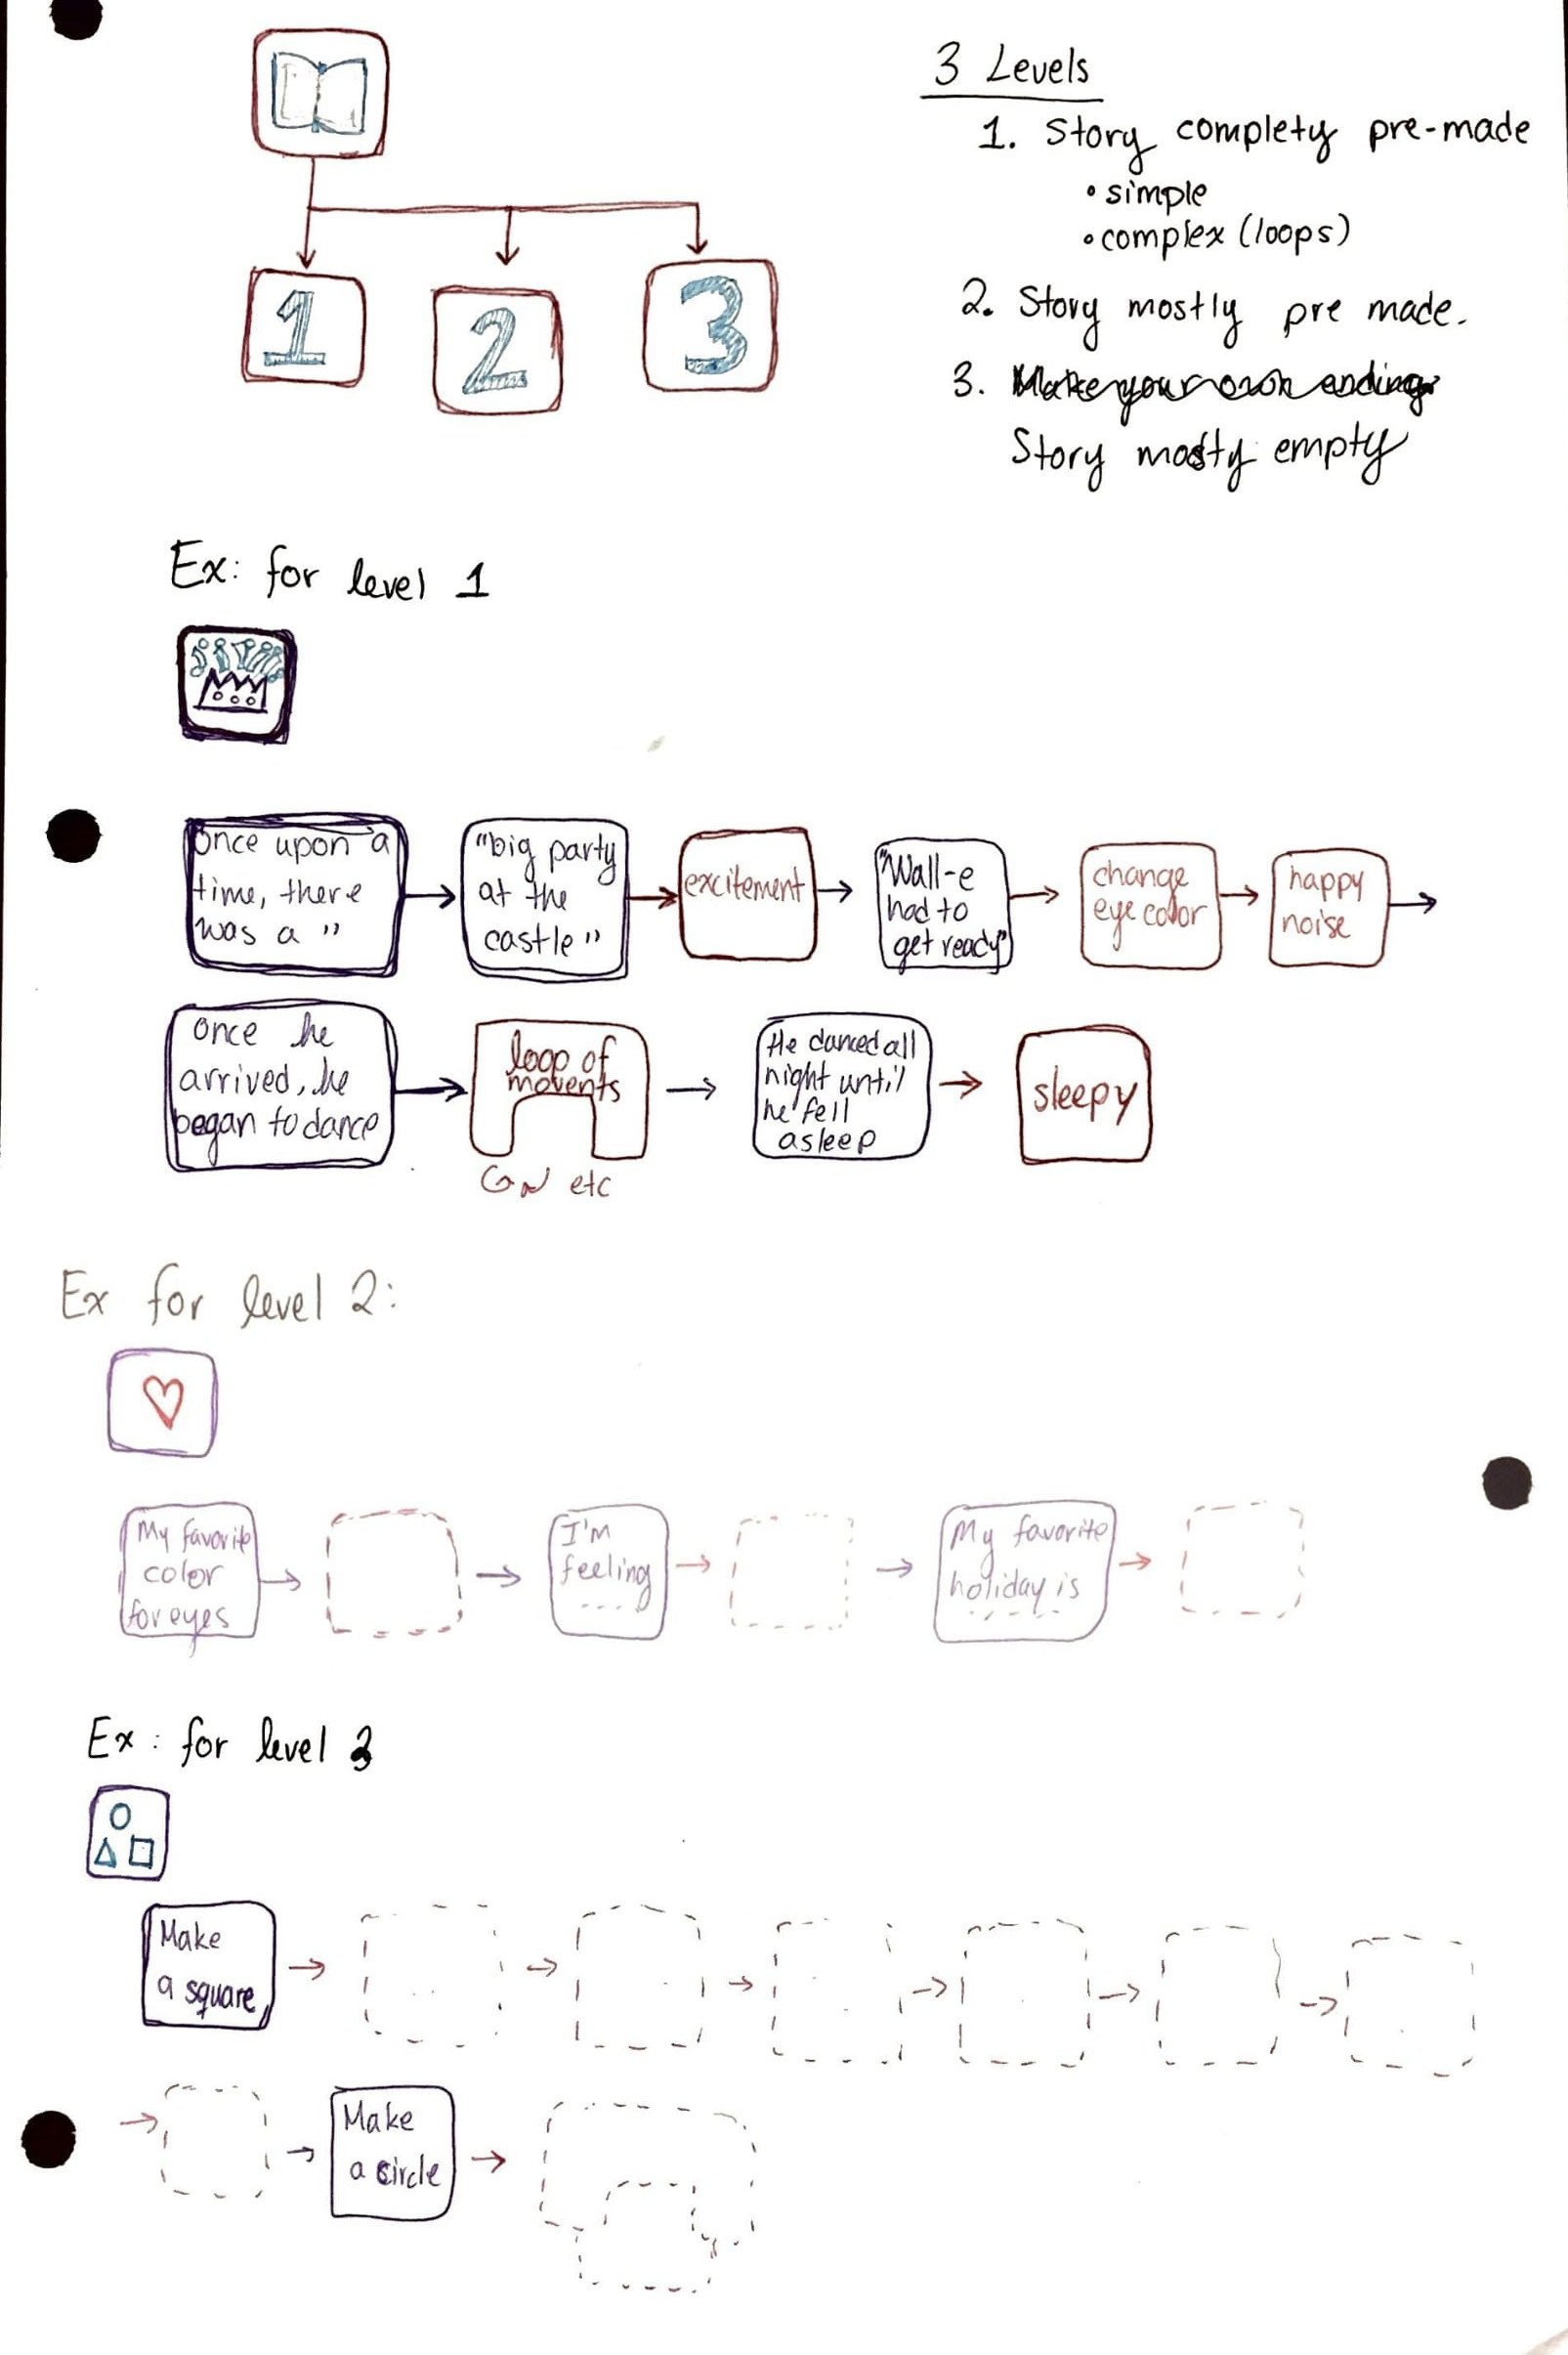 3 Levels
1. Story complety pre-made
• simple
• complex (loops)
2. Story mostly pre made.
3. Make your own ending
Story mostly empty
1
2
3
Ex: for level 1
Once upon a
time, there
was a "
"big party
at the
castle"
excitement
"Wall-e
had to
get ready"
change
eye color
happy
noise
once he
arrived, he
began to dance
loop of
movents
etc
He danced all
night until
he fell
asleep
sleepy
Ex for level 2:
My favorite
color
for eyes
I'm
feeling
My favorite
holiday is
Ex: for level 3
Make
a square
Make
a circle